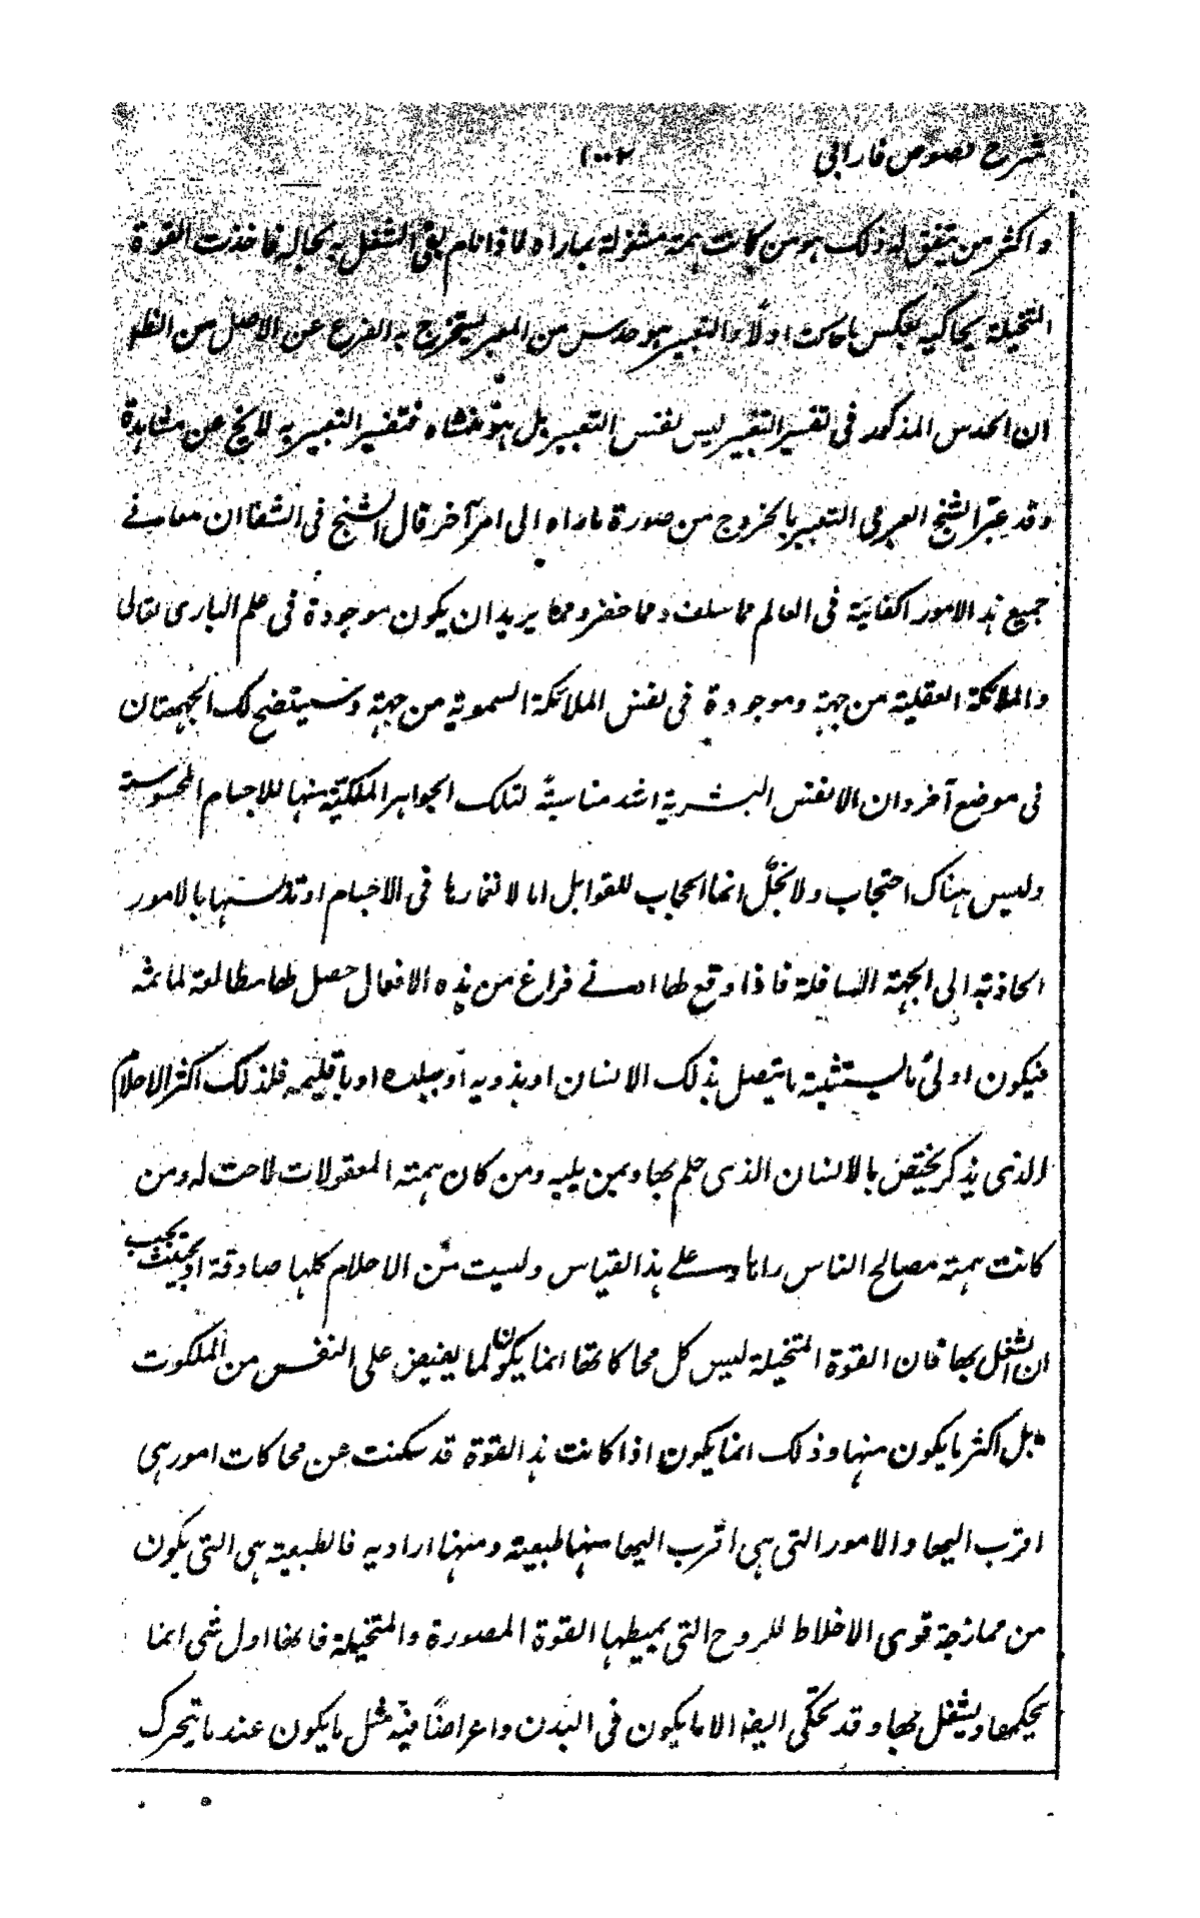 شرح فصوص فارابی ١٠٠٢
واكثر من يتفق له ذلك هو من كانت همته مشغولة بماراه فاذا نام بقى الشغل به بحاله فاخذت القوة
المتخيلة يحاكيه بعكس ماحاكت اولًا والتعبير هو حدس من المعبر ليستخرج به الفرع عن الاصل من الظو
ان الحدس المذكور فى تفسير التعبير ليس نفس التعبير بل هو منشاه فتفسير التعبير به لا يخ عن مشاهدة
وقد عبّر الشيخ العربى التعبير بالخروج من صورة ماراه الى امر آخر قال الشيخ فى الشفا ان معانى
جميع هذ الامور الكائنة فى العالم مما سلف ومما حضر ومما يريد ان يكون موجودة فى علم البارى تعالى
والملائكة العقلية من جهة وموجودة فى نفس الملائكة السموية من جهة وسيتضح لك الجهتان
فى موضع آخر وان الانفس البشرية اشد مناسبةً لتلك الجواهر الملكية منها للاجسام المحسوسة
وليس هناك احتجاب ولا بخل انما الحجاب للقوابل اما لانغمارها فى الاجسام او تدنسها بالامور
الجاذبة الى الجهة السافلة فاذا وقع لها ادنى فراغ من هذه الافعال حصل لها مطالعة لما ثمه
فيكون اولى ما يستثبته ما يتصل بذلك الانسان او بذويه او ببلده او باقليمه فلذلك اكثر الاحلام
الذى يذكر يختص بالانسان الذى حلم بها وبمن يليه ومن كان همته المعقولات لاحت له ومن
كانت همته مصالح الناس راها وعلى هذا القياس وليست من الاحلام كلها صادقة او بحيث يجب
ان الشغل بها فان القوة المتخيلة ليس كل محاكاتها انما يكون لما يفيض على النفس من الملكوت
بل اكثر ما يكون منها وذلك انما يكون اذا كانت هذ القوة قد سكنت عن محاكات امور هى
اقرب اليها والامور التى هى اقرب اليها منها طبيعة ومنها ارادية فالطبيعة هى التى يكون
من ممازجة قوى الاخلاط للروح التى يمتطيها القوة المصورة والمتخيلة فانها اول شى انما
يحكيها ويشغل بها وقد تحكى ايضا الاما يكون فى البدن واعراضًا فيه مثل ما يكون عند ما يتحرك